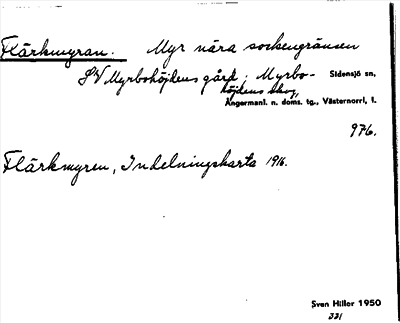 Flärkmyran. Myr nära sockengränsen
SV Myrbohöjdens gård; Myrbo-
höjdens skog,
Sidensjö sn,
Ångermanl. n. doms. tg., Västernorrl. l.
976.
Flärkmyren, Indelningskarta 1916.
Sven Hiller 1950
331